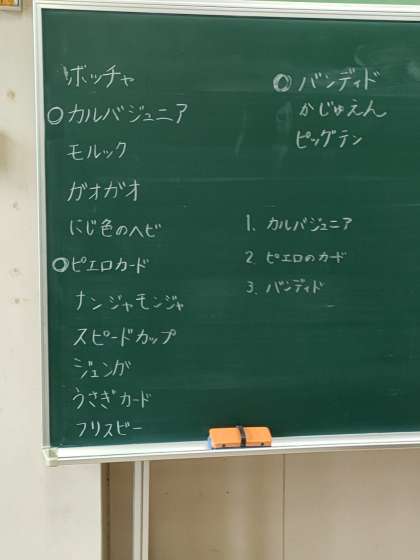 ボッチャ
○カルバジュニア
モルック
ガオガオ
にじ色のヘビ
○ピエロカード
ナンジャモンジャ
スピードカップ
ジェンガ
うさぎカード
フリスビー
○バンディド
かじゅえん
ピッグテン
1. カルバジュニア
2. ピエロのカード
3. バンディド